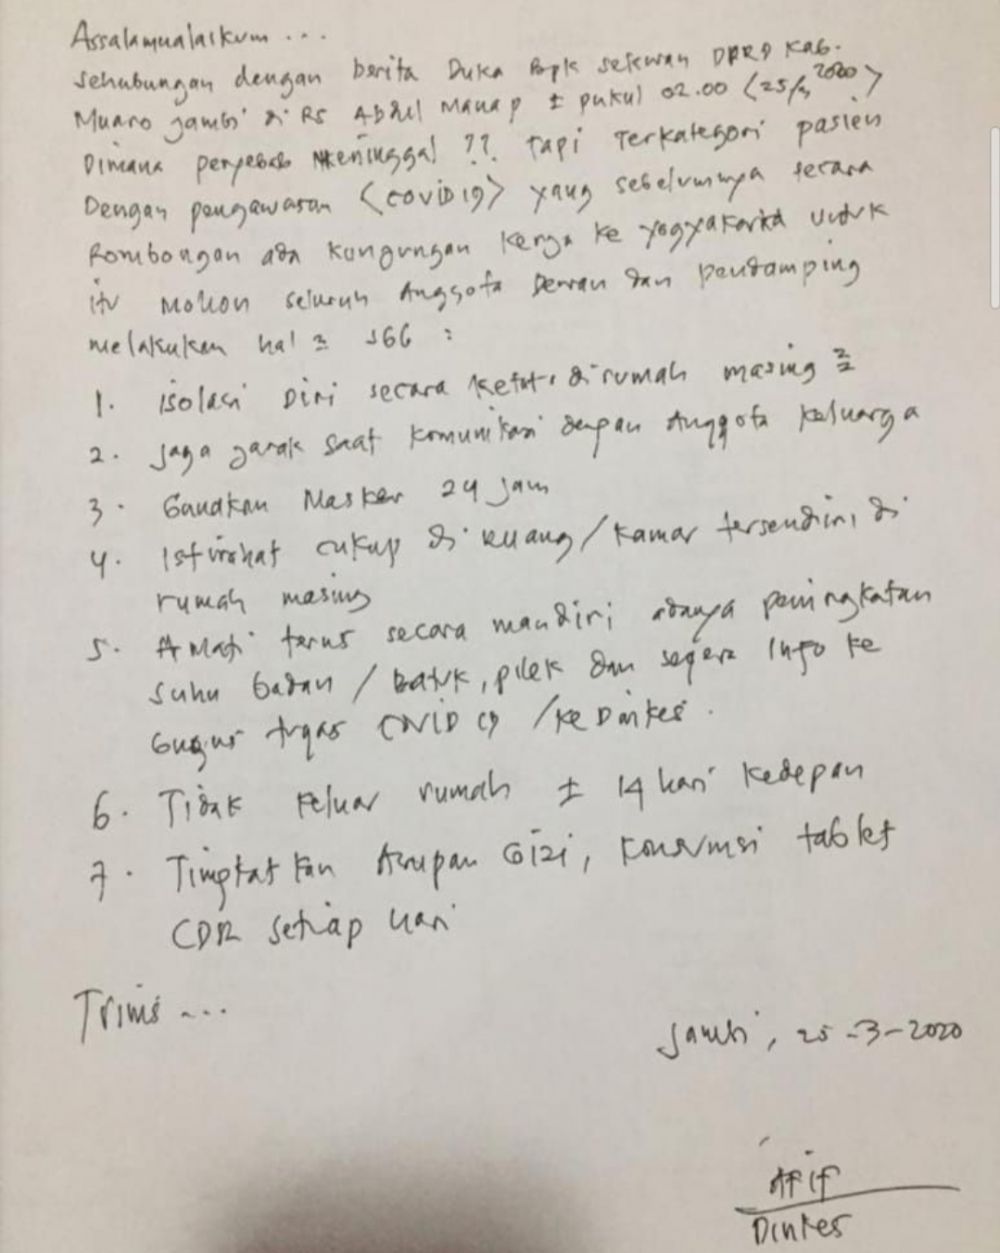 Assalamualaikum ...
sehubungan dengan berita Duka Bapk sekwan DPRD Kab.
Muaro Jambi di RS Abdul Manap ± pukul 02.00 (25/3 2020)
Dimana penyebab meninggal ??. Tapi Terkategori pasien
Dengan pengawasan (covid 19) yang sebelumnya secara
Rombongan ada kungungan kerja ke yogyakarta untuk
itu Mohon seluruh Anggota Dewan dan pendamping
melakukan hal 2 sbb :
1. isolasi Diri secara ketat di rumah masing 2
2. Jaga jarak saat komunikasi dengan Anggota keluarga
3. Gunakan Masker 24 Jam
4. Istirahat cukup di ruang/kamar tersendiri di
rumah masing
5. Amati terus secara mandiri adanya peningkatan
suhu badan / batuk, pilek dan segera Info ke
Gugus tugas COVID 19 /ke Dinkes.
6. Tidak keluar rumah ± 14 hari kedepan
7. Tingkatkan Asupan Gizi, konsumsi tablet
CDR setiap hari
Trims ...
Jambi, 25-3-2020
Afif
Dinkes